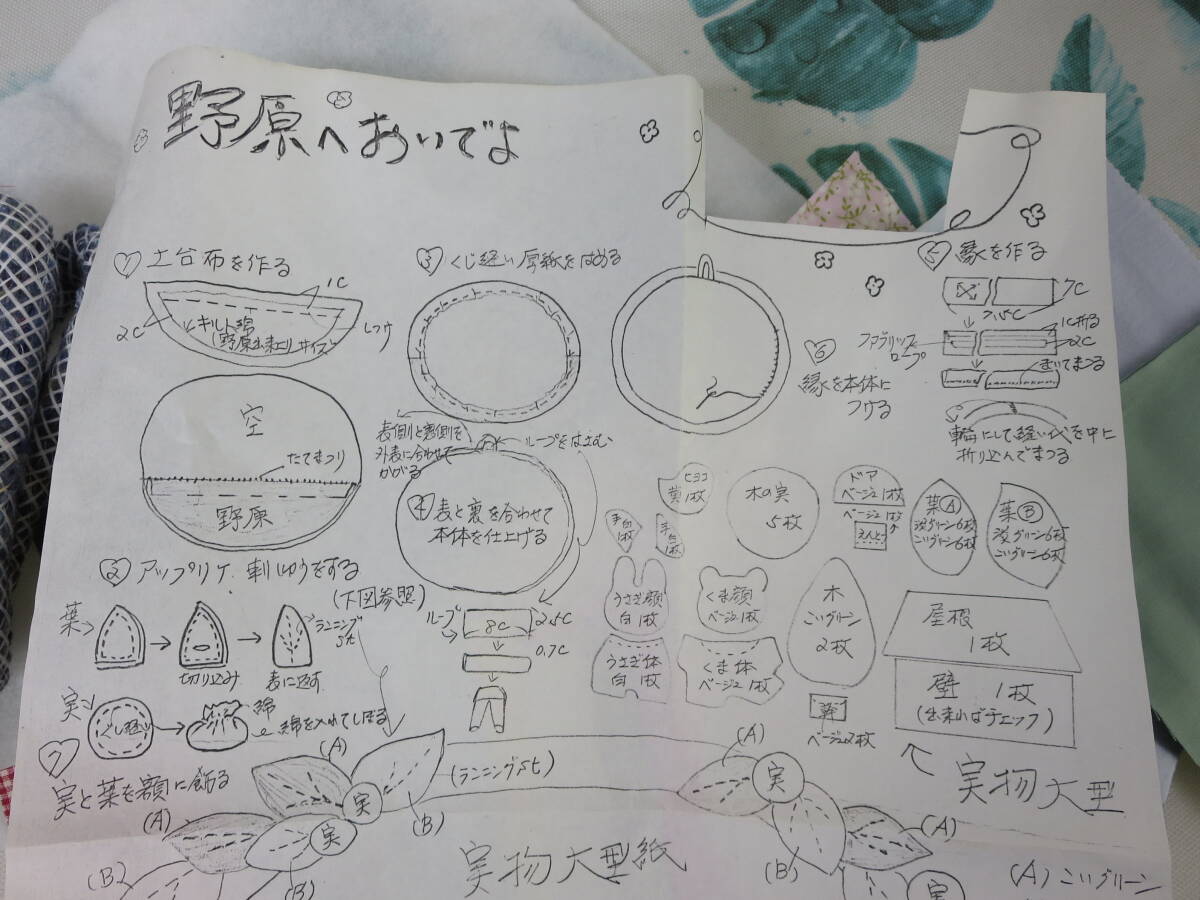 野原へおいでよ
① 土台布を作る
1C
2C
キルト綿
(野原出来上りサイズ)
しつけ
空
たてまつり
野原
② アップリケ、刺しゅうをする
(下図参照)
葉
切り込み
表に返す
ランニングst
実
ぐし縫い
綿
綿を入れてしぼる
③ くし縫い厚紙をはめる
表側と裏側を
外表に合わせて
かがる
ループをはさむ
④ 表と裏を合わせて
本体を仕上げる
ループ
8C
2.5C
0.7C
⑤ 縁を作る
7C
75C
ファブリック
ロープ
1C折る
2C
まいてまつる
輪にして縫い代を中に
折り込んでまつる
⑥
縁を本体に
つける
ヒヨコ
黄1枚
手白1枚
手白1枚
木の実
5枚
ドア
ベージュ1枚
ベージュ1枚
えんとつ
葉Ⓐ
淡グリーン6枚
こいグリーン6枚
葉Ⓑ
淡グリーン6枚
こいグリーン6枚
うさぎ顔
白1枚
くま顔
ベージュ1枚
うさぎ体
白1枚
くま体
ベージュ1枚
木
こいグリーン
2枚
幹
ベージュ2枚
屋根
1枚
壁 1枚
(出来ればチェック)
実物大型
⑦
実と葉を額に飾る
(A)
(B)
(A)
(B)
(B)
実
実
(ランニングst)
実物大型紙
(A)
実
(A)
(B)
実
(A) こいグリーン